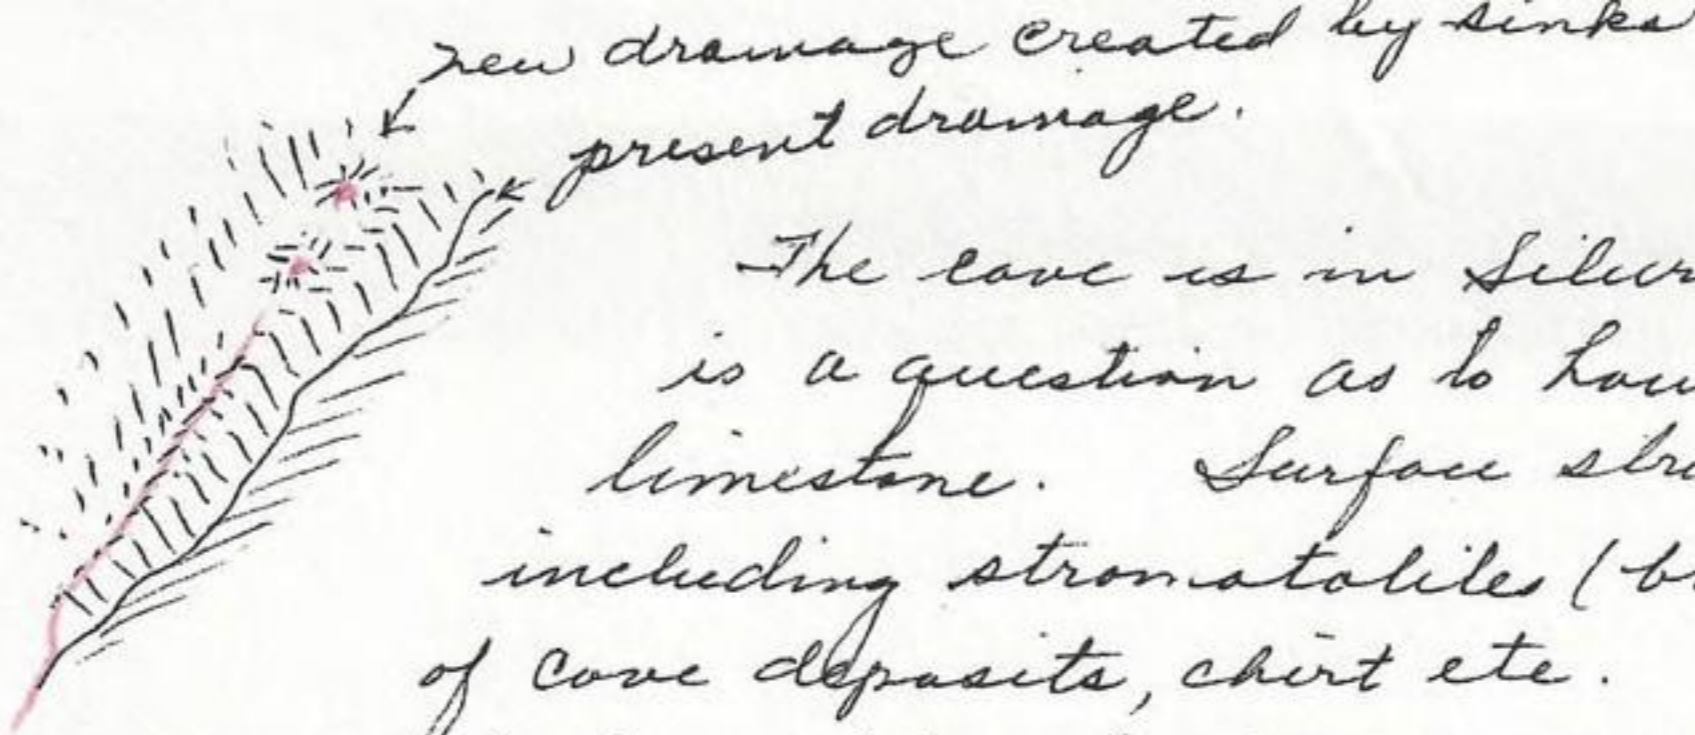 new drainage created by sinks
present drainage.
The cave is in Silur
is a question as to how
limestone. Surface stre
including stromatolites (b
of cave deposits, chert etc.